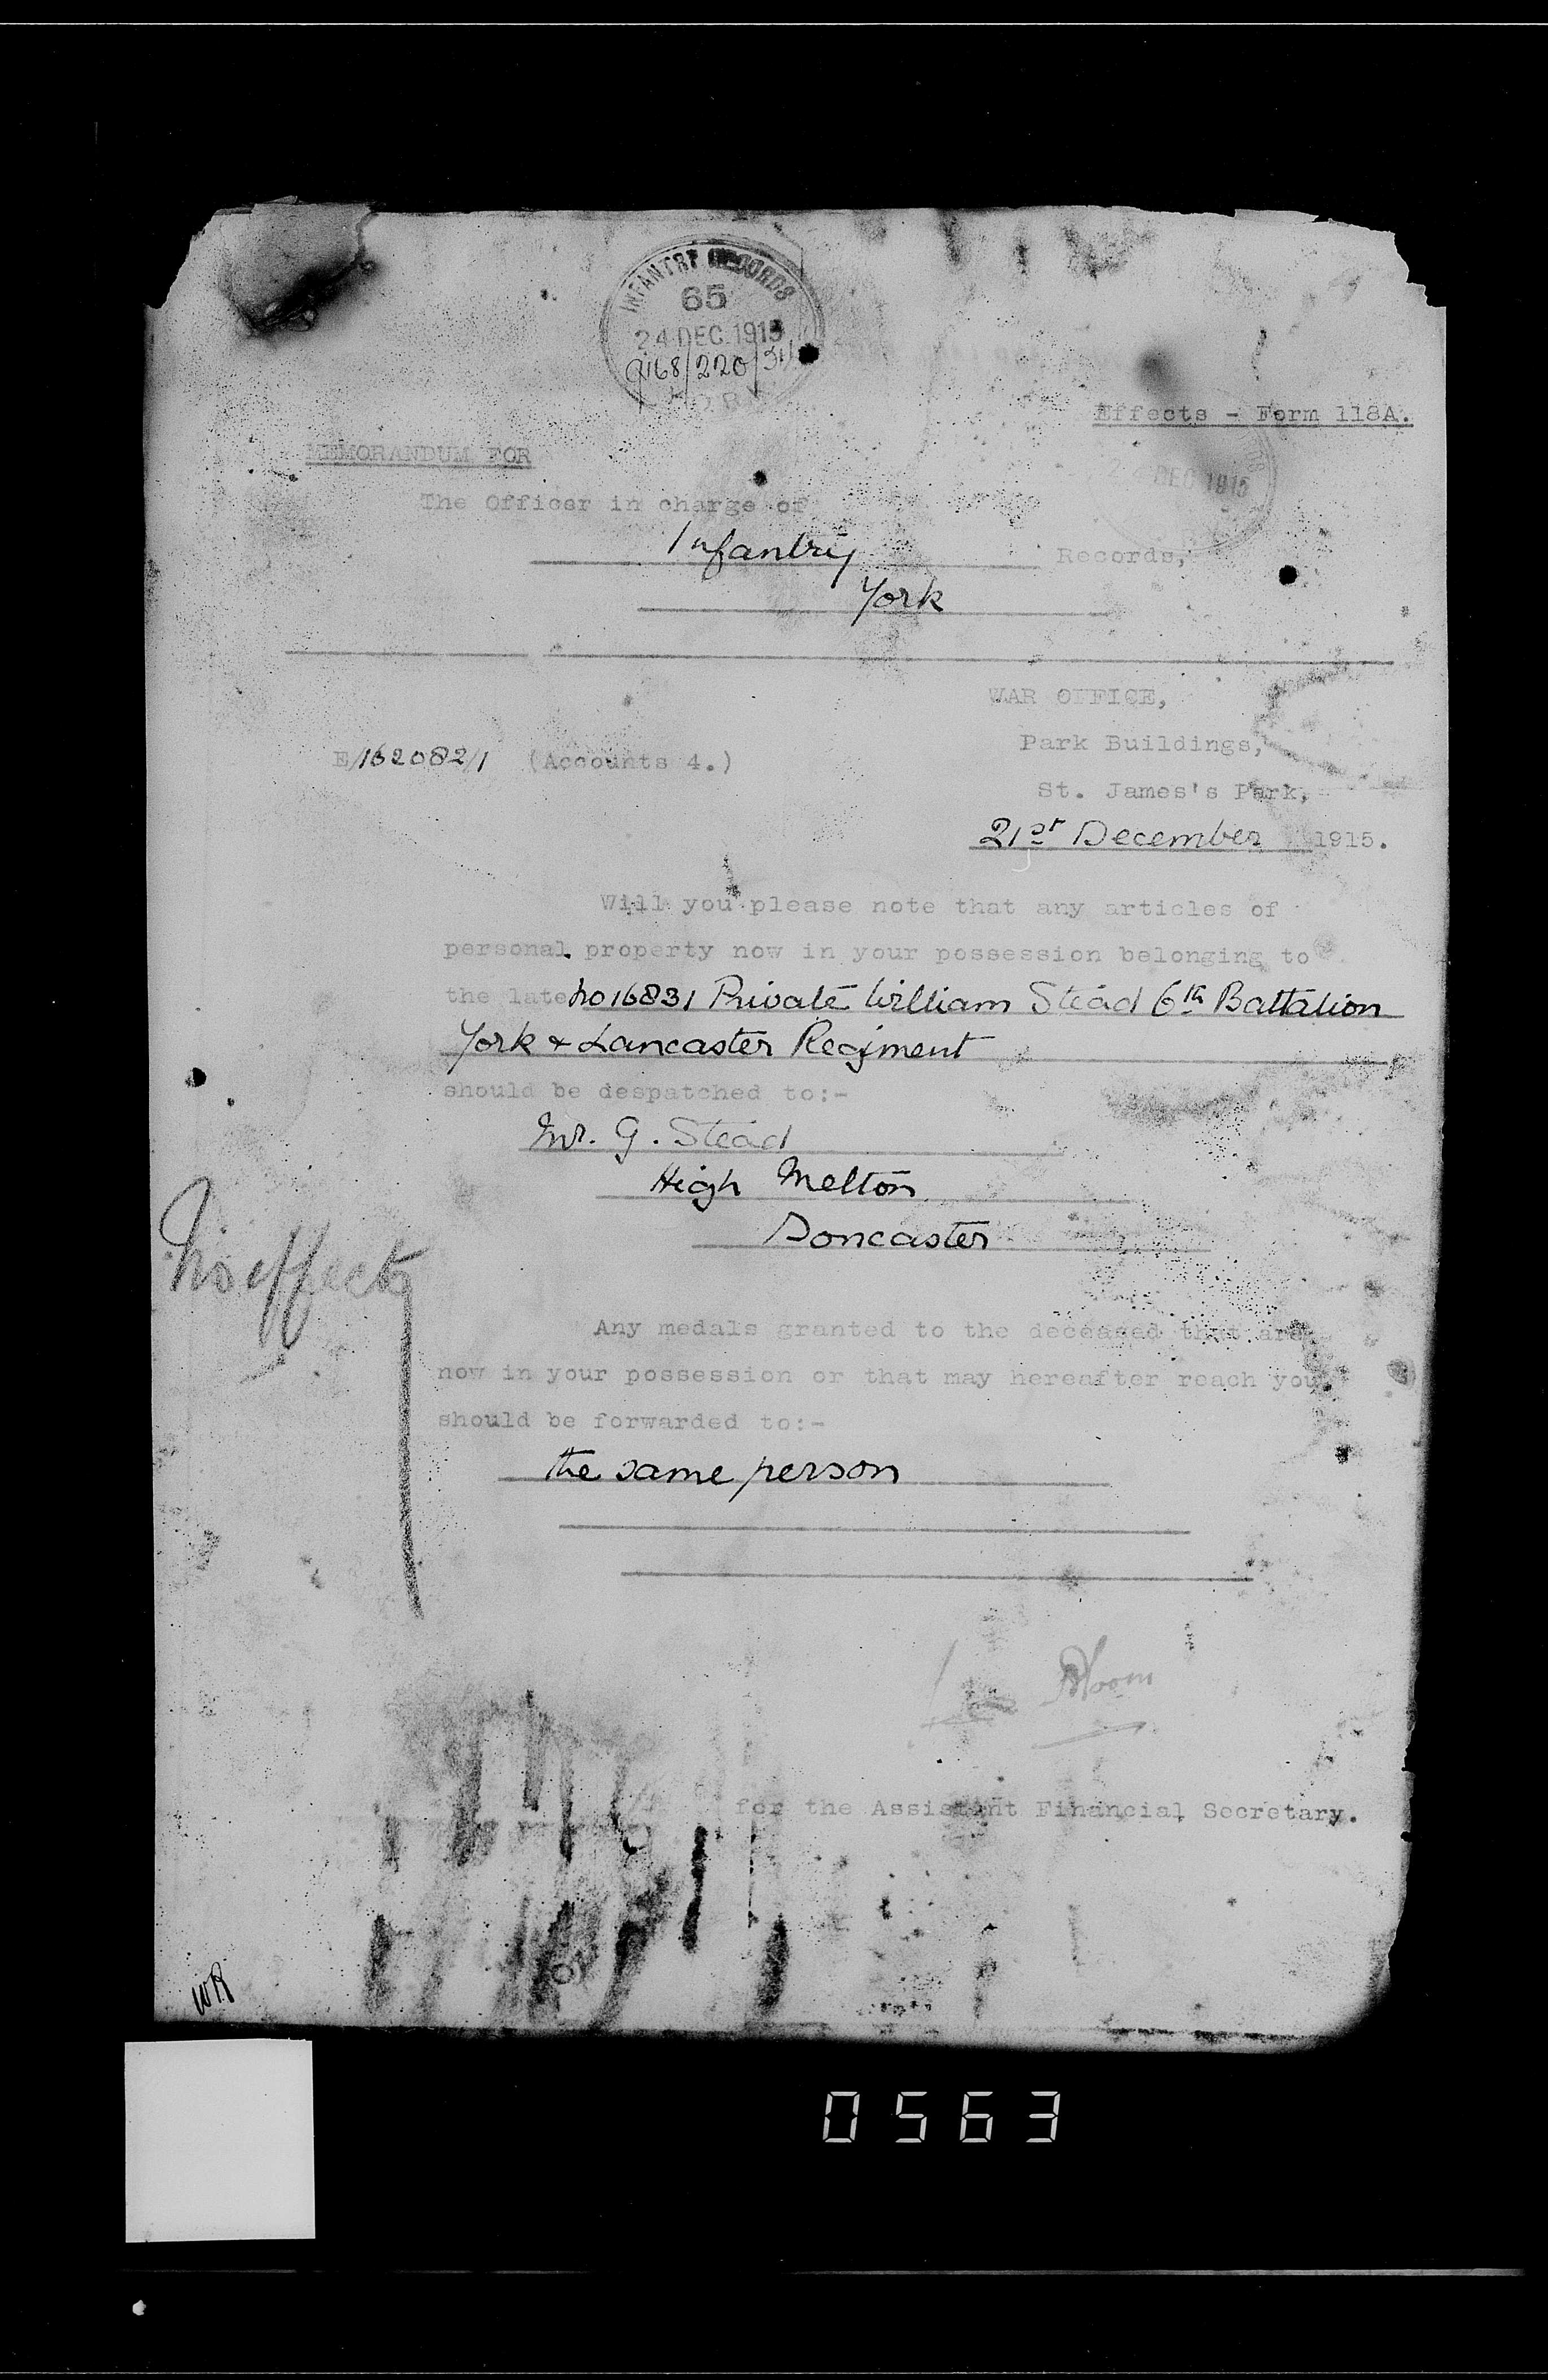 INFANTRY RECORDS
65
24 DEC. 1915
168/220/
YORK
Effects - Form 118A.
MEMORANDUM FOR
24 DEC 1915
The Officer in charge of
Infantry Records,
York
WAR OFFICE,
Park Buildings,
E/162082/1 (Accounts 4.)
St. James's Park,
21st December 1915.
Will you please note that any articles of
personal property now in your possession belonging to
the late No 16831 Private William Stead 6th Battalion
York & Lancaster Regiment
should be despatched to:-
Mr. G. Stead
High Melton
Doncaster
No effects
Any medals granted to the deceased that are
now in your possession or that may hereafter reach you
should be forwarded to:-
the same person
for the Assistant Financial Secretary.
WR
0563